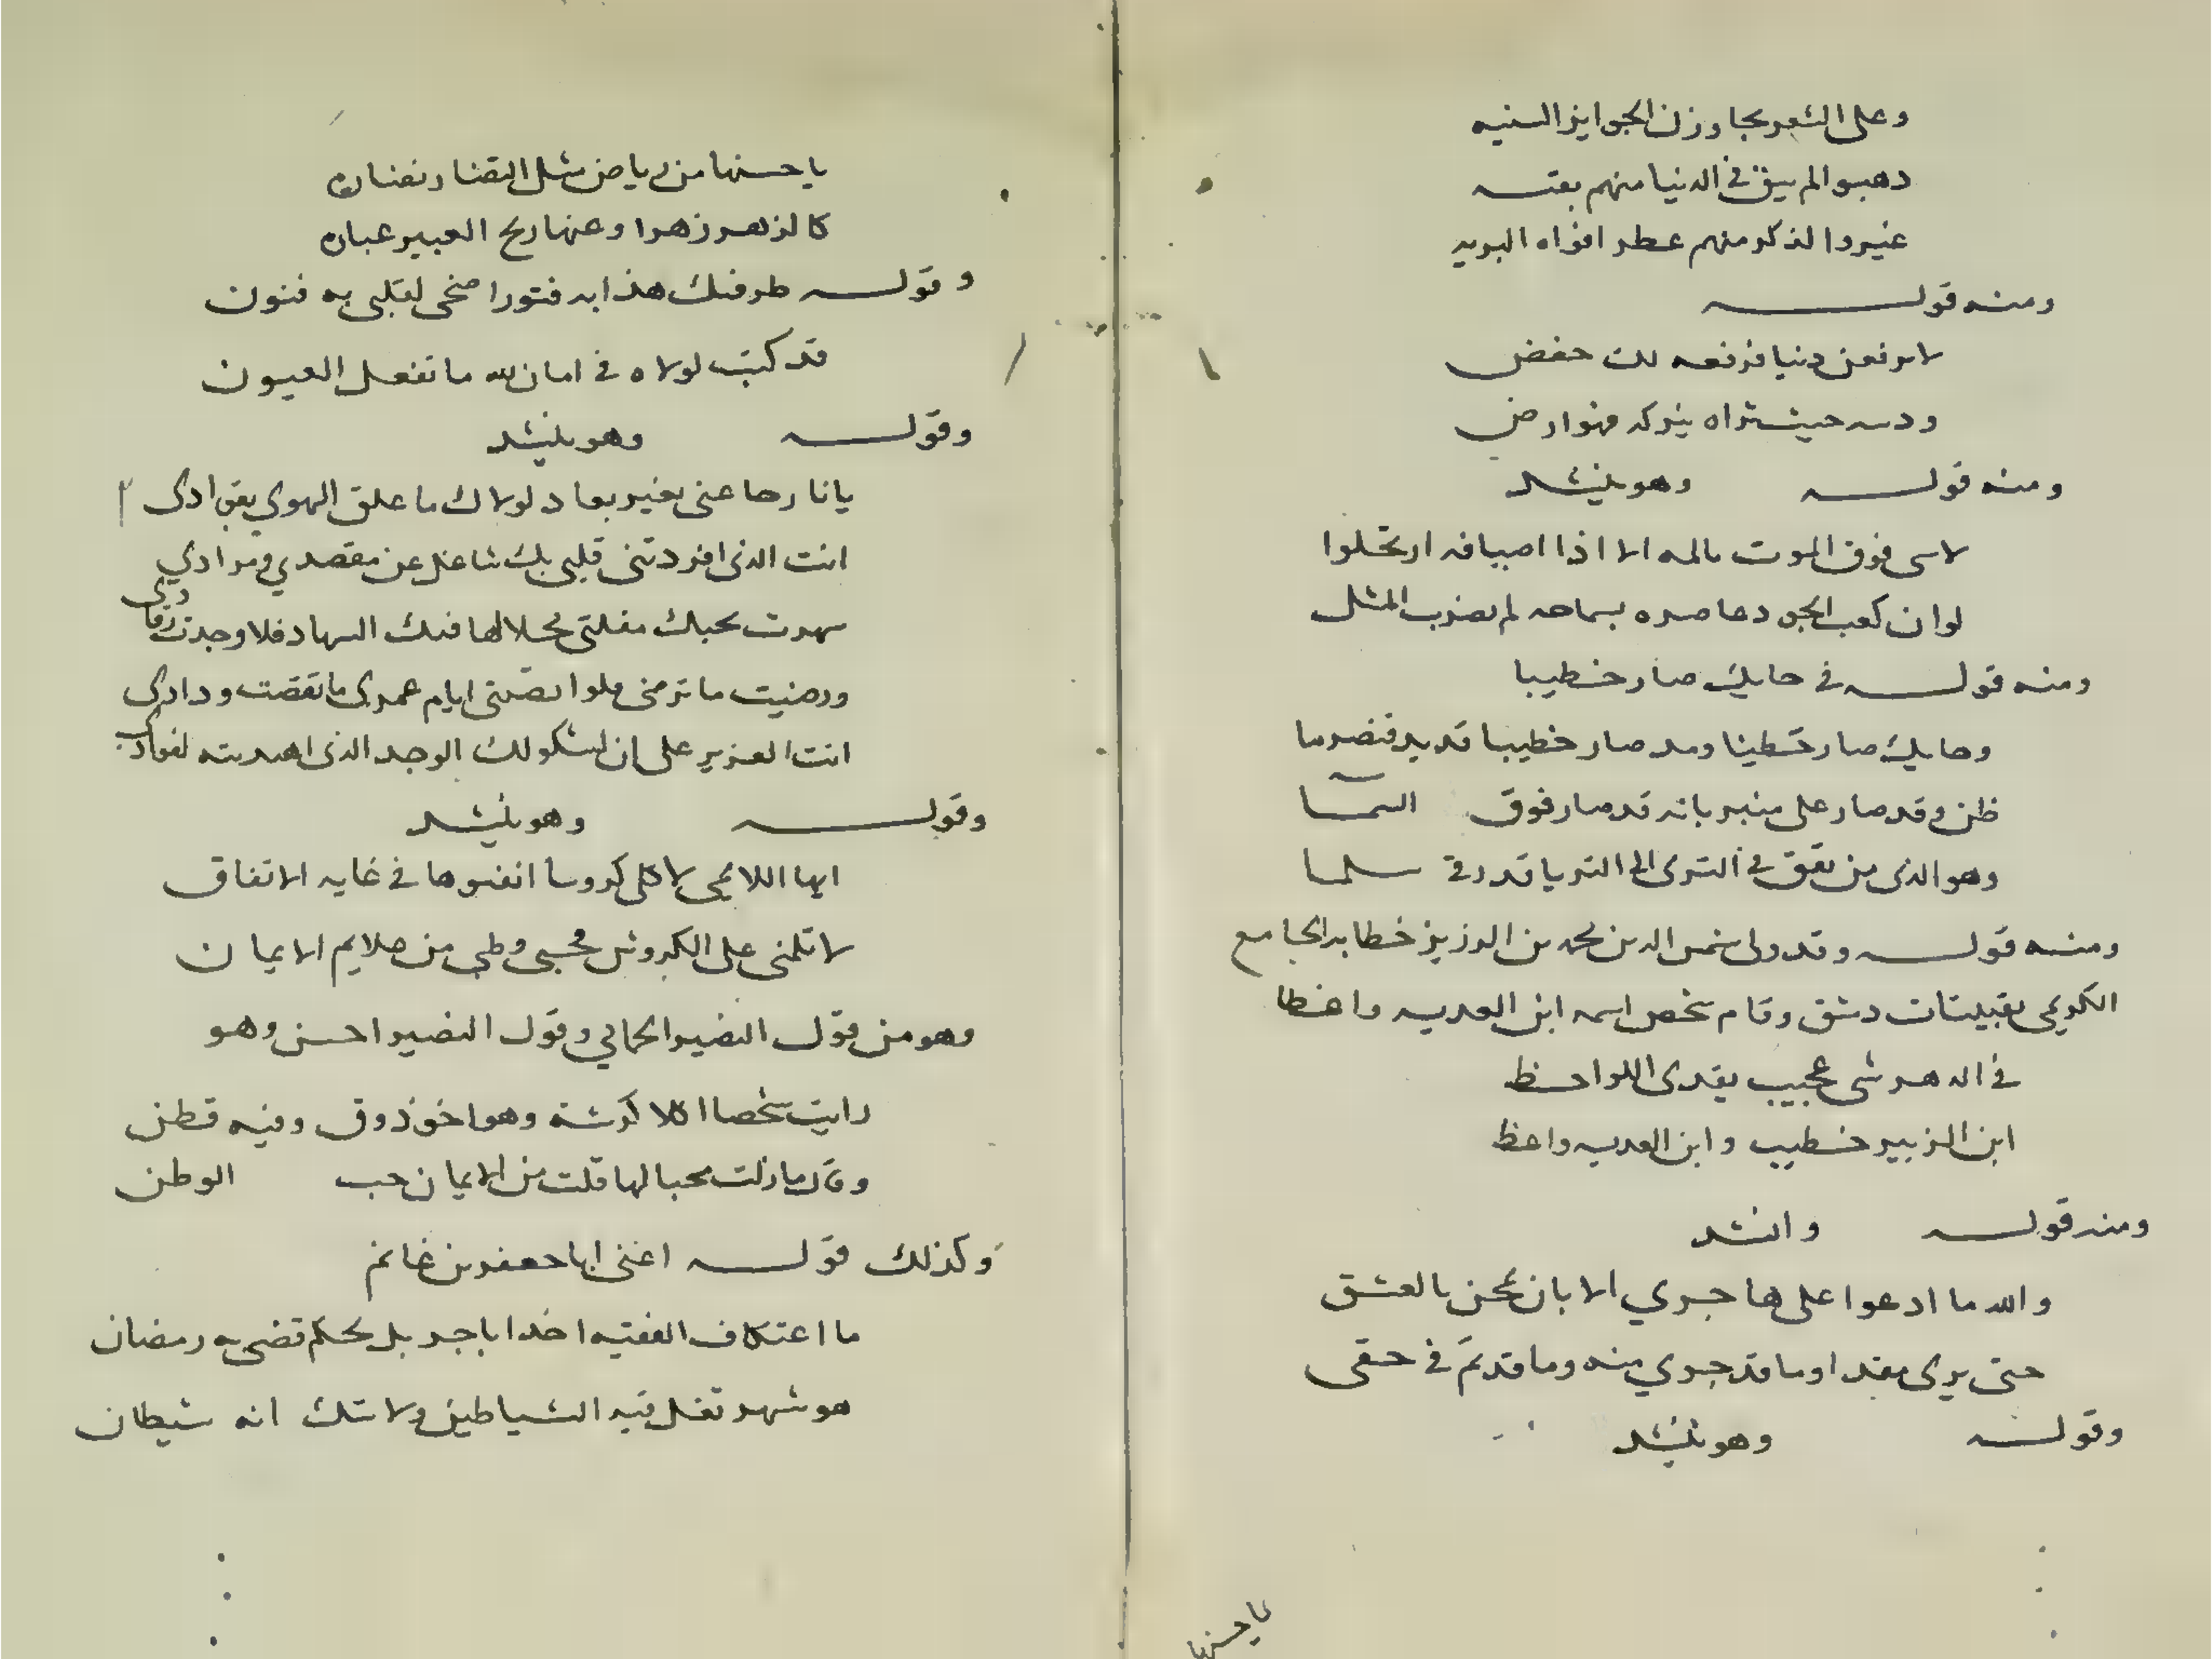 وعلى الشعر يجاوزن الجوايز السنيه
دهبوا لم يبق في الدنيا منهم بقيه
غير والذكر منهم عطر افواه البريه
ومنه قوله
لا ترفعن دنيا فرفعه لك خفض
ودسه حيث تراه يتركه فهو ارض
ومنه قوله وهو ينشد
لا سى فوق الموت يالمه الا اذا اضيافه ارتحلوا
لو ان كعب الجود عاصره بسماحه لم يضرب المثل
ومنه قوله في حايك صار خطيبا
وحايك صار خطيبا ومد صار خطيبا قد
ظن وقد صار على منبر بانه قد صار فوق السما
وهو الذي من تحت في الثرى الى الثريا قد رقى سلما
ومنه قوله وقد ولى شمس الدين محمد بن الزبير خطابه الجامع
الكريمي بقبيبات دمشق وقام شخص اسمه ابن العديه واعظا
في الدهر شي عجيب يقدى اللواحظ
ابن الزبير خطيب وابن العديه واعظ
ومنه قوله وانشد
والله ما ادعوا على هاجري الا بان يمحن بالعشق
حتى يرى مقدار ما قد جرى منه وما قد تم في حقى
وقوله وهو ينشد
يا حسنها
يا حسنها من رياض مثل النضار نضاره
كالزهر زهرا وعنها ريح العبير عباره
وقوله طرفك هذا به فتورا ضحى لقلبي به فتون
قد كنت لولاه في امان لله ما تفعل العيون
وقوله وهو ينشد
يا نارحا عني بغير بعاد لولاك ما علق الهوي بفوادى
انت الذى افردتنى قلبى بك شاغل عن مقصدي ومرادي
سهرت بحبك مقلتى فحلالها فيك السهاد فلا وجدت رقادى
ورضيت ما ترضى فلو اقصيتنى ايام عمرى ما نقضت ودادى
انت العزيز على ان اشكو لك الوجد الذى اهديته لفوادى
وقوله وهو ينشد
ايها اللائمى لاكلى كروسا اتقنوها في غايه الاتقان
لا تلمنى على الكروش فحبى وطنى من علايم الايمان
وهو من قول النصير الحمامي وقول النصير احسن وهو
رايت شخصا اكلا كرشة وهو اخو ذوق وفيه فطن
وقال ما زلت محبا لها قلت من الايمان حب الوطن
وكذلك قوله اعنى ابا جعفر بن غانم
ما اعتكاف الفقيه اخدا باجر بل بحكم قضى به رمضان
هو شهر تغل فيه الشياطين ولا شك انه شيطان